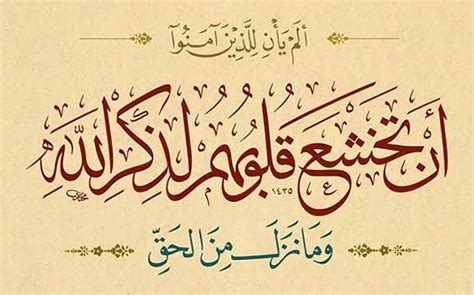 ألم يأن للذين آمنوا
أن تخشع قلوبهم لذكر الله
١٤٣٥
وما نزل من الحق